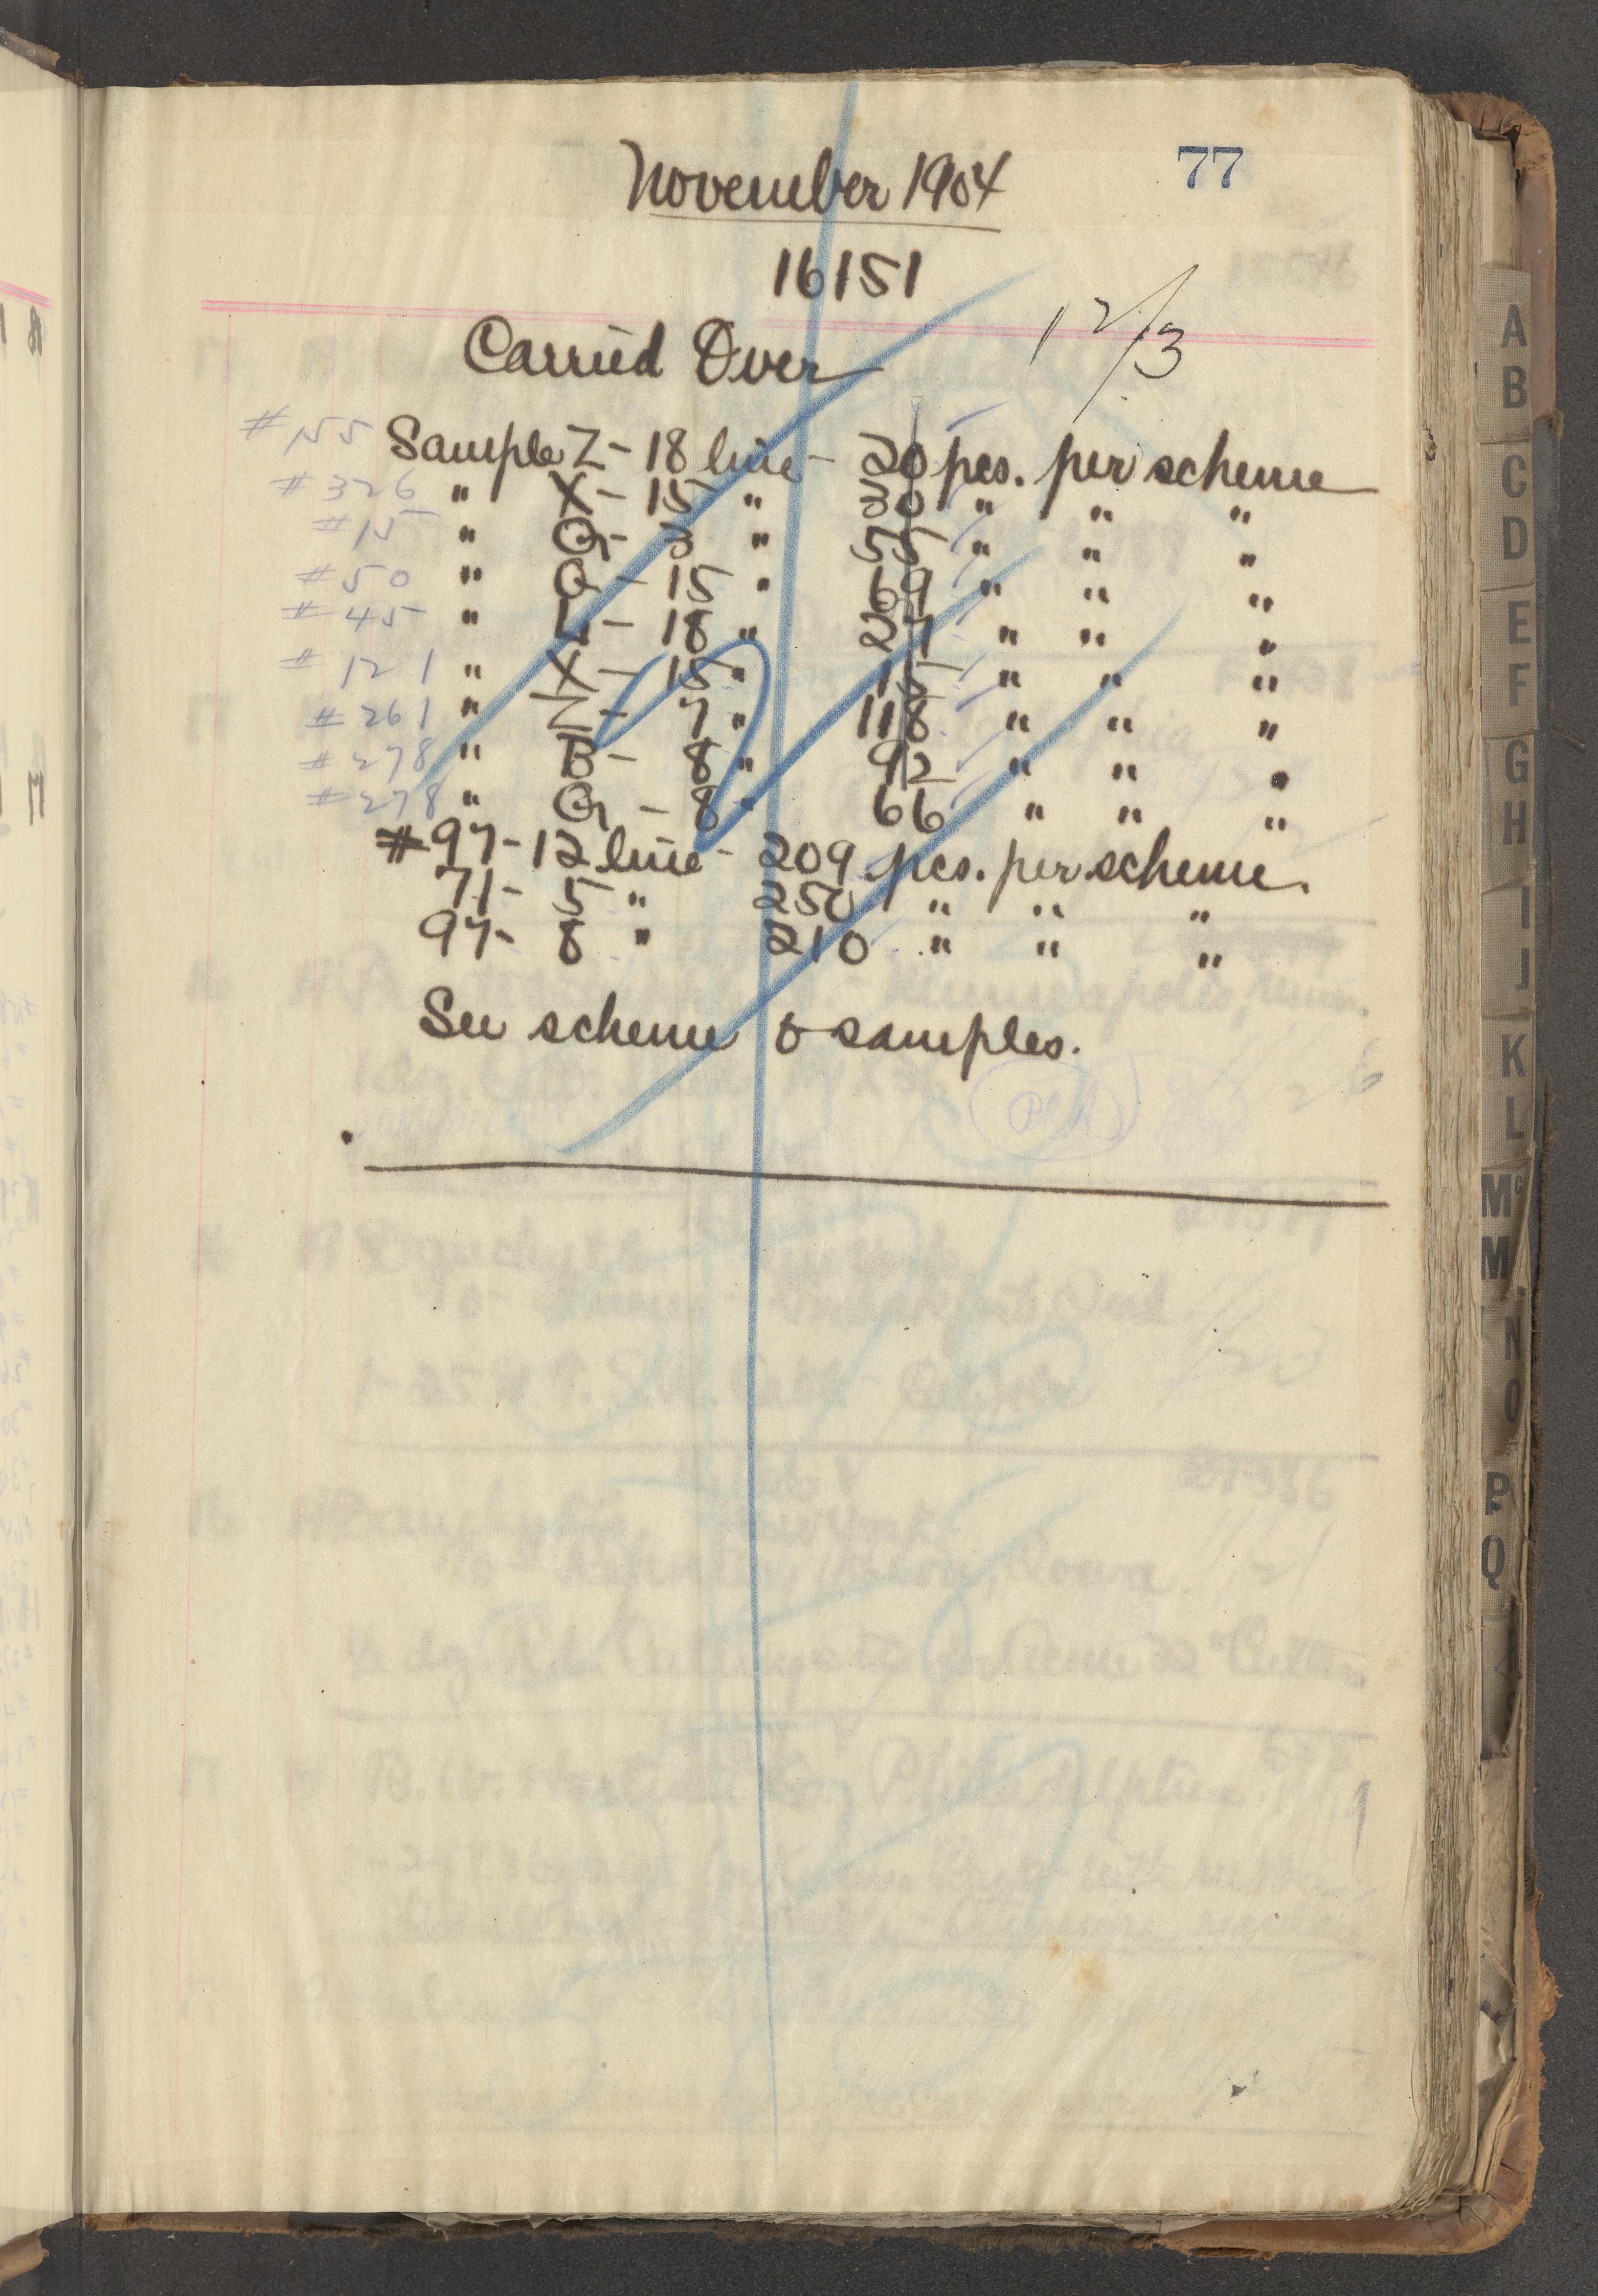 November 1904
77
16151
Carried Over
12/3
#155 Sample Z - 18 line - 20 pcs. per scheme
#326 " X - 15 " 30 " " "
#15 " G - 3 " 55 " " "
#50 " G - 15 " 69 " " "
#45 " L - 18 " 27 " " "
#121 " X - 15 " 15 " " "
#261 " Z - 7 " 118 " " "
#278 " B - 8 " 92 " " "
#278 " G - 8 " 66 " " "
#97 - 12 line - 209 pcs. per scheme.
71 - 5 " 250 " " "
97 - 8 " 210 " " "
See scheme & samples.
A
B
C
D
E
F
G
H
I
J
K
L
Mc
M
N
O
P
Q